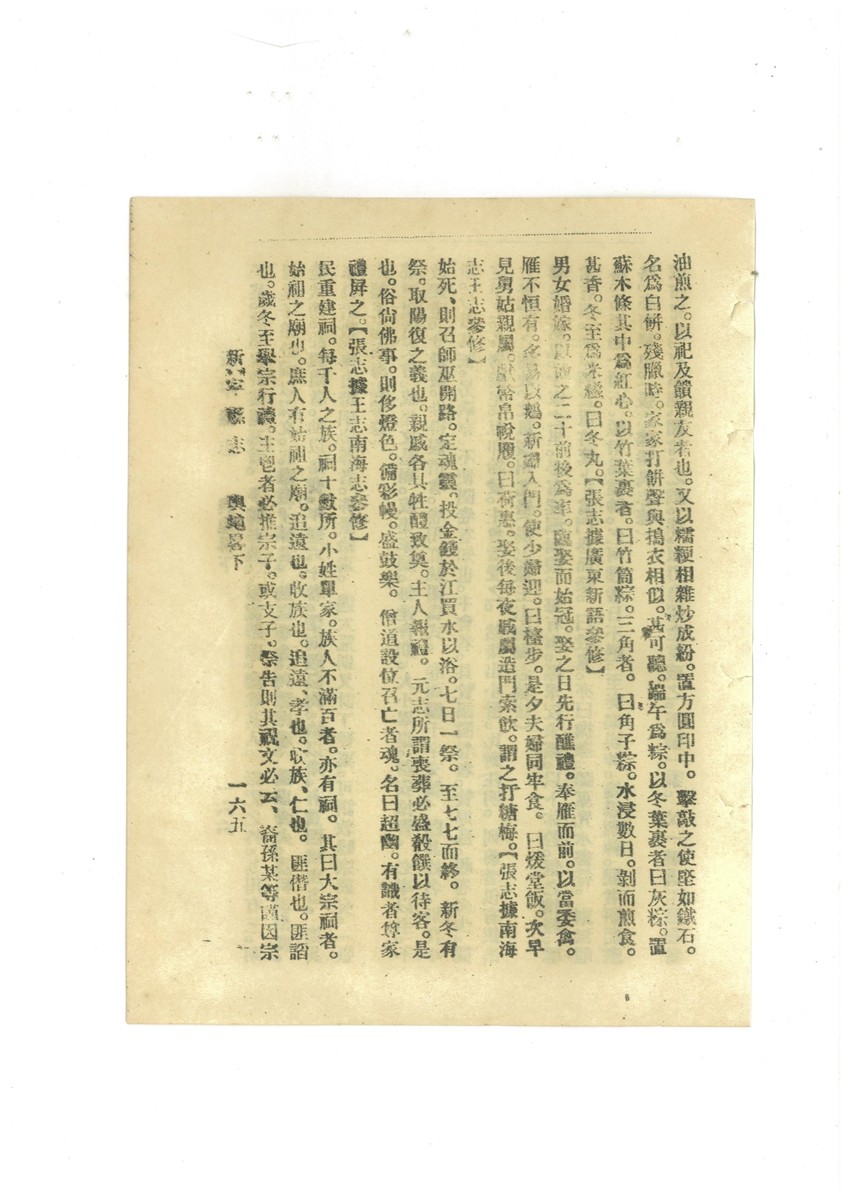 油煎之。以祀及饋親友者也。又以糯粳相雜炒成粉。置方圓印中。擊敲之使堅如鐵石。
名爲白餅。殘臘時。家家打餅聲與搗衣相似。甚可聽。端午爲粽。以冬葉裹者曰灰粽。置
蘇木條其中爲紅心。以竹葉裹者。曰竹筒粽。三角者。曰角子粽。水浸數日。剝而煎食。
甚香。冬至爲米糍。曰冬丸。【張志據廣東新語參修】
男女婚嫁。以前之二十前後爲率。臨娶而始冠。娶之日先行醮禮。奉雁而前。以當委禽。
雁不恒有。多易以鵝。新婦入門。使少婦迎。曰 步。是夕夫婦同牢食。曰煖堂飯。次早
見舅姑親屬。獻 帛帨履。曰荷惠。娶後每夜戚屬造門索飲。謂之打糖梅。【張志據南海
志王志參修】
始死、則召師巫開路。定魂靈。投金錢於江買水以浴。七日一祭。至七七而終。新冬有
祭。取陽復之義也。親戚各具牲醴致奠。主人報禮。元志所謂喪葬必盛殽饌以待客。是
也。俗尙佛事。則侈燈色。備彩幔。盛鼓樂。僧道設位召亡者魂。名曰超幽。有識者尊家
禮屏之。【張志據王志南海志參修】
民重建祠。每千人之族。祠十數所。小姓單家。族人不滿百者。亦有祠。其曰大宗祠者。
始祖之廟也。庶人有始祖之廟。追遠也。收族也。追遠、孝也。收族、仁也。匪僭也。匪諂
也。歲冬至舉宗行禮。主鬯者必推宗子。或支子。祭告則其祝文必云、裔孫某等謹因宗
新寧縣志 輿地畧下 一六五